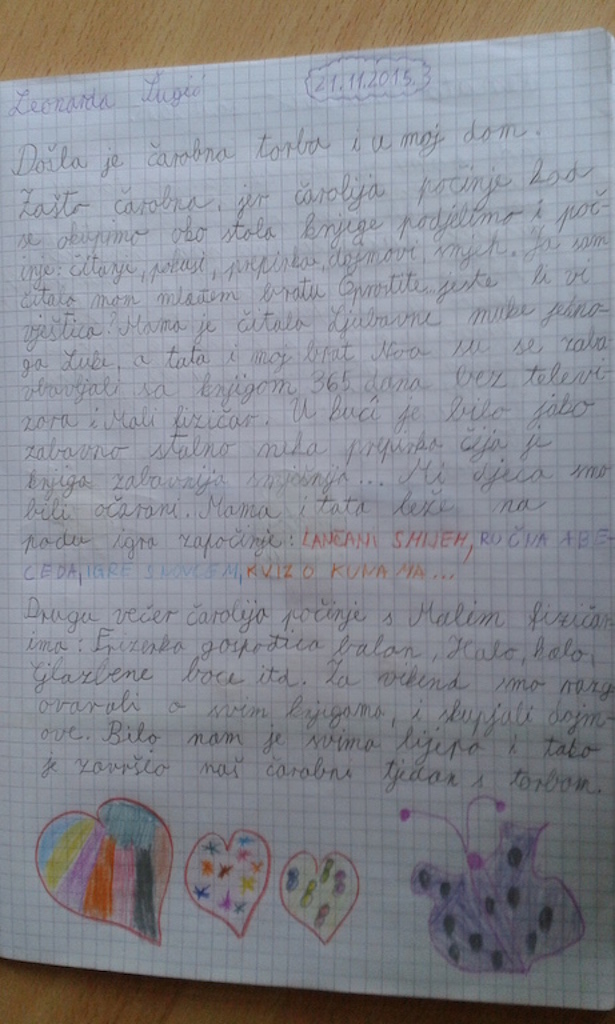 Leonarda Lugić 21.11.2015.
Došla je čarobna torba i u moj dom.
Zašto čarobna, jer čarolija počinje kad
se okupimo oko stola knjige podjelimo i poč-
inje: čitanje, pokusi, prepirka, dojmovi, smjeh. Ja sam
čitala mom mlađem bratu Oprostite, jeste li vi
vještica? Mama je čitala Ljubavne muke jedno-
ga Luke, a tata i moj brat Noa su se zaba
vljali sa knjigom 365 dana bez televi
zora i Mali fizičar. U kući je bilo jako
zabavno stalno neka prepirka čija je
knjiga zabavnija smješnija... Mi djeca smo
bili očarani. Mama i tata leže na
podu igra započinje: LANČANI SMIJEH, RUČNA ABE-
CEDA, IGRE S NOVCEM, KVIZ O KUNAMA...
Drugu večer čarolija počinje s Malim fizičar
ima: Frizerka gospođica balon, Halo, halo,
Glazbene boce itd. Za vikend smo razg
ovarali o svim knjigama, i skupljali dojm
ove. Bilo nam je svima lijepo i tako
je završio naš čarobni tjedan s torbom.